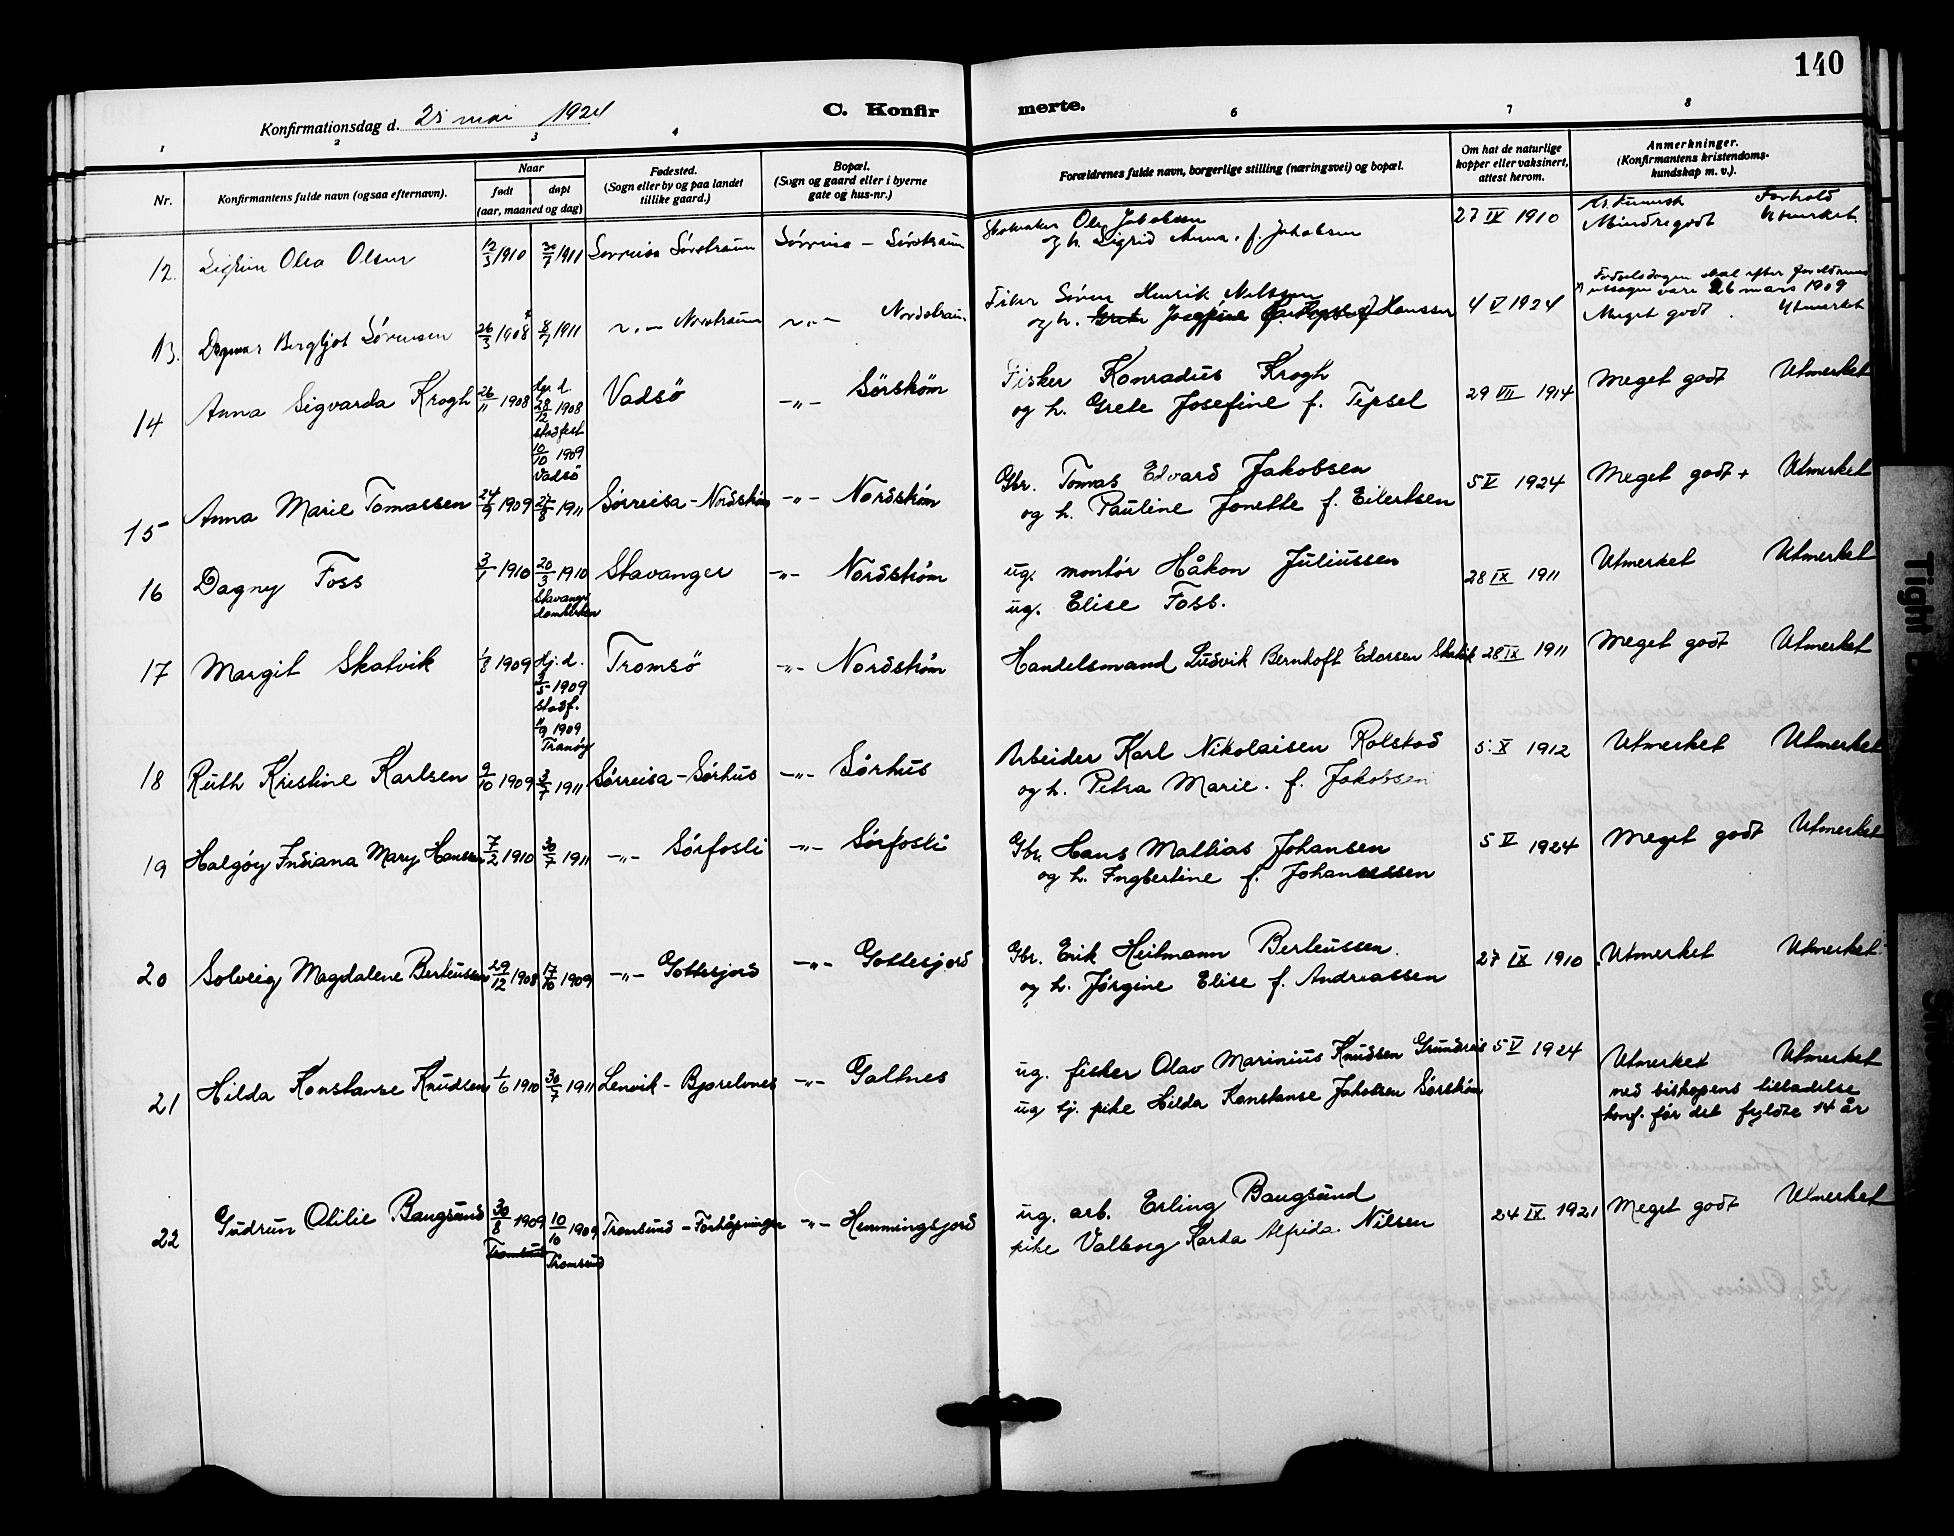 140
Konfirmationsdag d. 25 mai 1924
C. Konfir merte.
1 2 3 4 6 7 8
Nr.
Konfirmantens fulde navn (ogsaa efternavn).
Naar
født
døpt
(aar, maaned og dag)
Fødested.
(Sogn eller by og paa landet
tillike gaard.)
Bopæl.
(Sogn og gaard eller i byerne
gate og hus-nr.)
Forældrenes fulde navn, borgerlige stilling (næringsvei) og bopæl.
Om hat de naturlige
kopper eller vaksinert,
attest herom.
Anmerkninger.
(Konfirmantens kristendoms-
kundskap m. v.).
12. Olea Olsen 12/3 1910 30/7 1911 Sørreisa Sørstraum Sørreisa - Sørstraum
Skomaker Ole Jakobsen
og h. Sigrid Anna. f. Jakobsen
27 IX 1910
Kr. kunnsk Forhold
Mindre godt Utmerket.
13. Dagmar Bergljot Sørensen 26/3 1908 8/7 1911 -„- Nordstraum -„- Nordstraum
Fisker Søren Henrik Nilsen
og h. Grete Josefine f. Hanssen
4 V 1924
Fødselsdagen skal efter forældrenes
utsagn være 26 mars 1909
Meget godt. Utmerket
14 Anna Sigvarda Krogh 26/11 1908
hj. d.
28/12 1908
stadfest
10/10 1909
Vadsö
Vadsö -„- Sørskøm
Fisker Konradus Krogh
og h. Grete Josefine f. Tepsel
29 VII 1914
Meget godt Utmerket
15 Anna Marie Tomassen 24/9 1909 27/8 1911 Sørreisa - Nordskøm -„- Nordskøm
Gbr. Tomas Edvard Jakobsen
og h. Pauline Jonette f. Eilertsen
5 V 1924
Meget godt + Utmerket
16 Dagny Foss 3/1 1910 20/3 1910
Stavanger
domkirken
Stavanger -„- Nordskøm
ug. montør Håkon Juliussen
ug. Elise Foss.
28 IX 1911
Utmerket Utmerket
17 Margit Skatvik 1/8 1909
hj. d.
1909
stadf.
1909
Tranöy
Tromsö -„- Nordskøm
Handelsmand Ludvik Bernhoft Edorsen Skatvik
28 IX 1911
Meget godt Utmerket
18 Ruth Kristine Karlsen 9/10 1909 3/7 1911 Sørreisa - Sørhus -„- Sørhus
Arbeider Karl Nikolaisen Rolstad
og h. Petra Marie. f. Jakobsen
5 X 1912
Utmerket Utmerket
19 Halgöy Indiana Mary Hanssen 7/2 1910 30/7 1911 -„- Sørfosli -„- Sørfosli
Gbr. Hans Mathias Johansen
og h. Ingbertine f. Johannessen
5 V 1924
Meget godt Utmerket
20 Solveig Magdalene Berteussen 29/12 1908 17/10 1909 -„- Gottesjord -„- Gottesjord
Gbr. Erik Heitmann Berteussen.
og h. Jørgine Elise f. Andreassen
27 IX 1910
Utmerket Utmerket
21 Hilda Konstanse Knudsen 1/6 1910 30/7 1911 Lenvik - Bjorelvnes -„- Galtnes
ug. fisker Olav Marinius Knudsen Grundreis
ug tj. pike Hilda Konstanse Jakobsen Sørskøm
5 V 1924
Utmerket Utmerket
med biskopens tilladelse
konf. før det fyldte 14 år
22 Gudrun Otilie Baugsund 30/8 1909 10/10 1909
Tromsund
Tromsund
Tromsund - Forhåpningen -„- Hemmingsjord
ug. arb. Erling Baugsund
pike Valborg Karda Alfrida Nilsen
24 IX 1921
Meget godt Utmerket